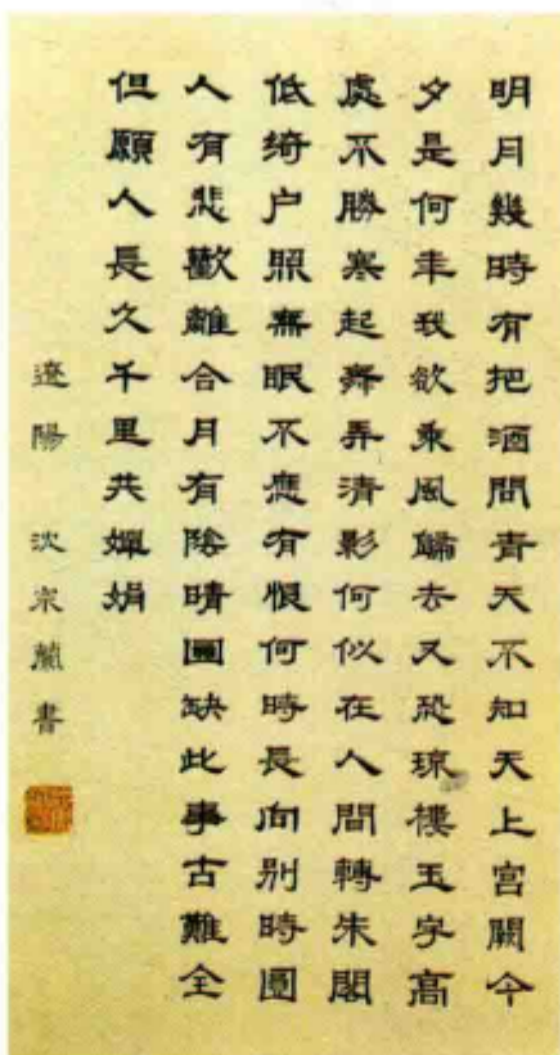 明月幾時有把酒問青天不知天上宮闕今
夕是何年我欲乘風歸去又恐瓊樓玉宇高
處不勝寒起舞弄清影何似在人間轉朱閣
低綺户照無眠不應有恨何時長向別時圓
人有悲歡離合月有陰晴圓缺此事古難全
但願人長久千里共嬋娟
遼陽 沈宗蘭書